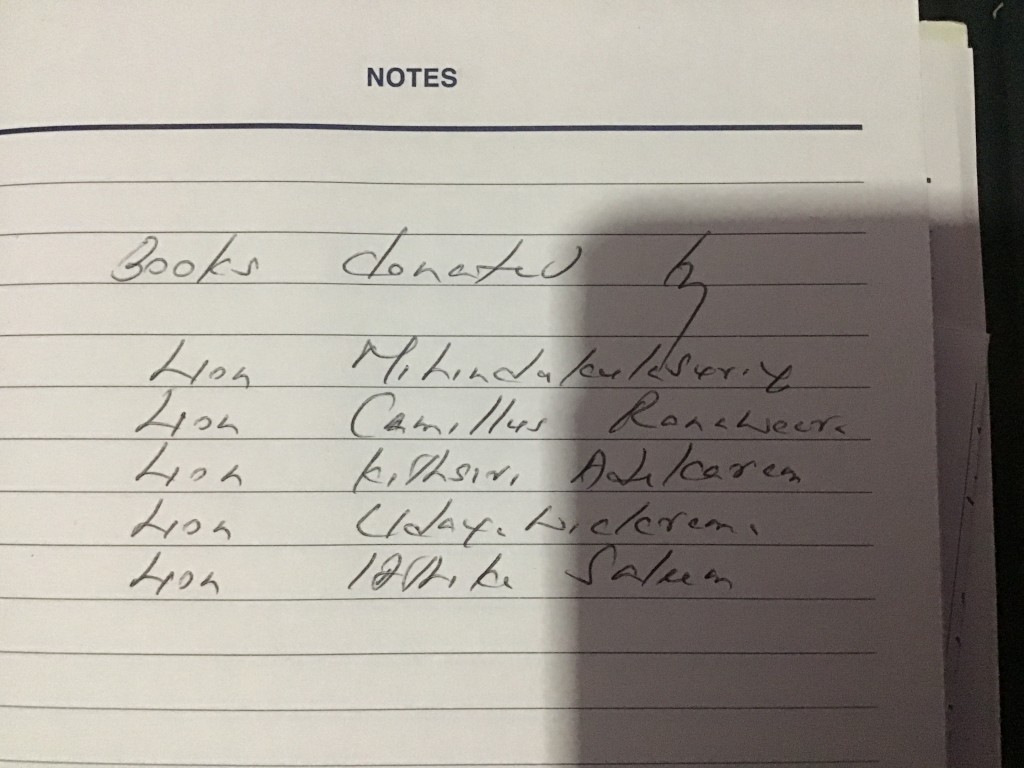 NOTES
Books donated by
Lion Mihindukulasuriya
Lion Camillus Ranaweera
Lion Kithsiri Adikaram
Lion Udaya Wickrema
Lion Saleem